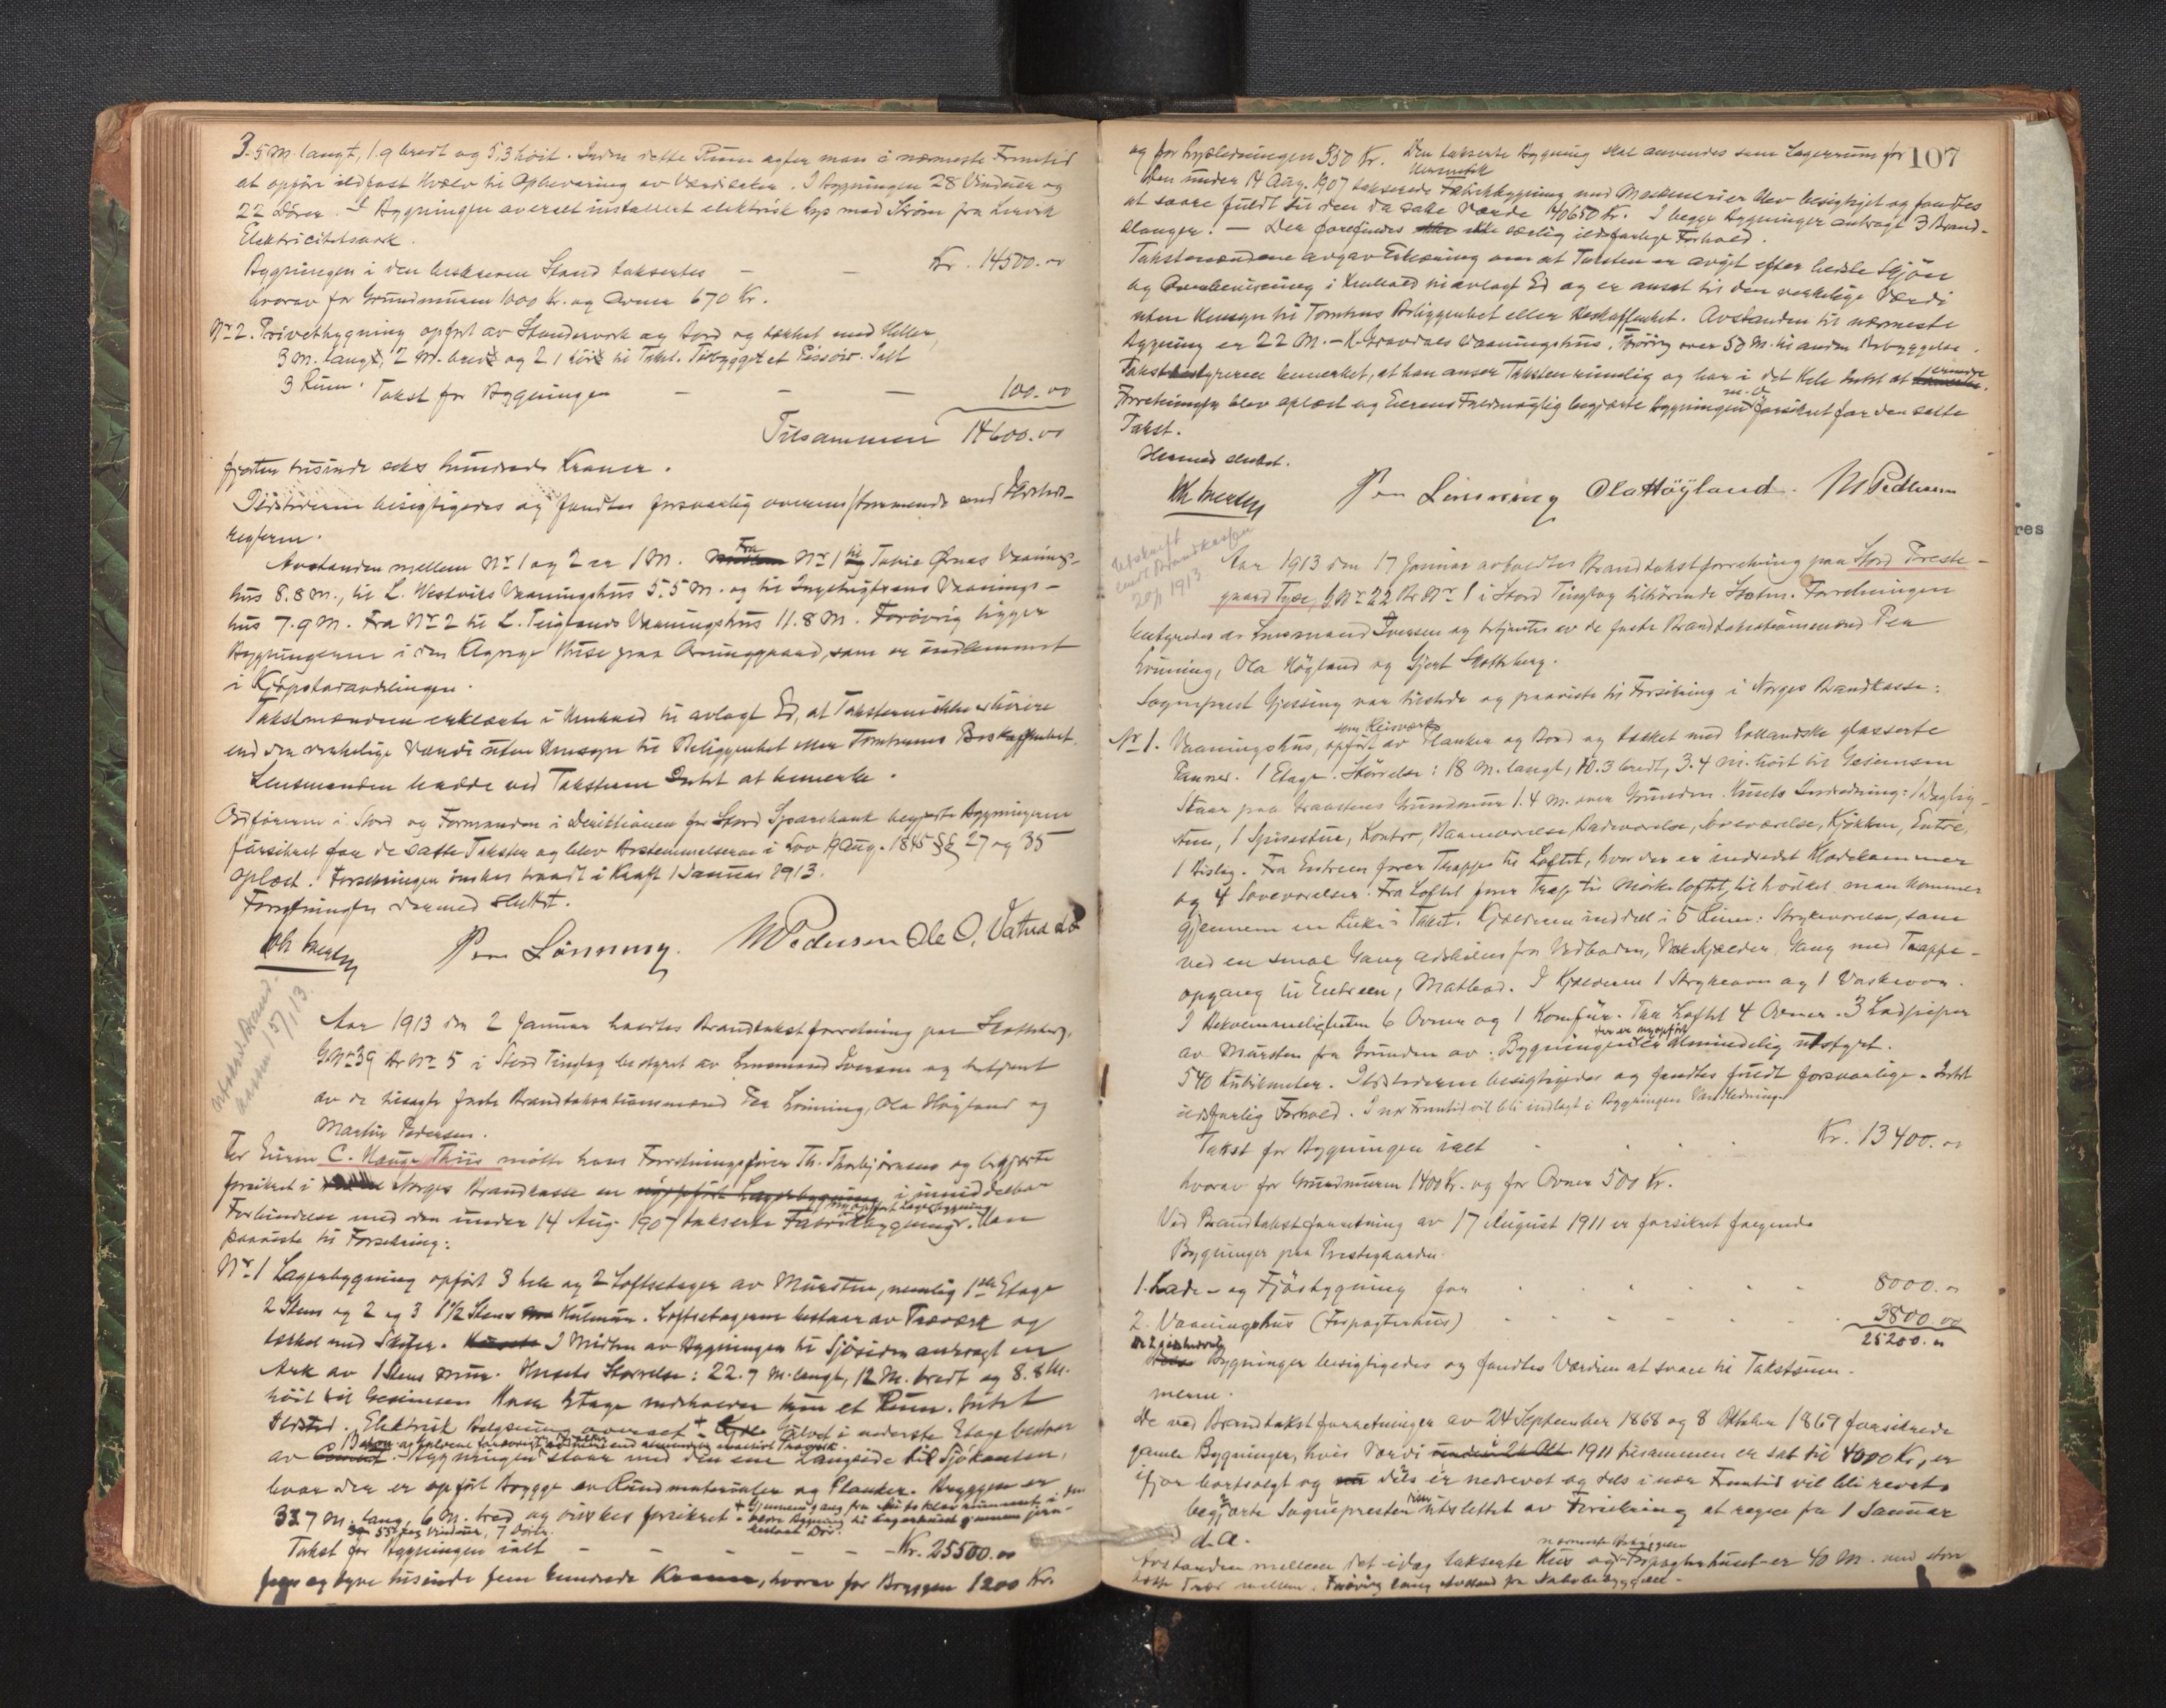 3.5 M. langt, 1.9 bredt og 5.3 höit. Inden dette Rum agter man i nærmeste Fremtid
at opföre ildfast Hvælv til Opbevaring av Værdisaker. I Bygningen 28 Vinduer og
22 Dörer. I Bygningen overalt installert elektrisk Lys med Ström fra Lervik
Elektricitetsverk.
Bygningen i den beskrevne Stand takseres - - Kr. 14500.00
hvorav for Grundmuren 1000 Kr. og Ovner 670 Kr.
Nr 2. Privetbygning opfört av Stenderverk og Bord og tækket med Heller,
3 M. langt, 2 M. bredt og 2.1 höit til Takst. Tilbygget et Pissoir. Ialt
3 Rum.
Takst for Bygningen - - - 100.00
Tilsammen 14600.00
fjorten tusinde seks hundrede Kroner.
Ildstederne besigtigedes og fandtes forsvarlig overensstemmende med Forskrifts-
reglerne.
Avstanden mellem Nr 1 og 2 er 1 M. Fra Nr 1 til Tobie Ørnas Vaanings-
hus 8.8 M., til L. Westviks Vaaningshus 5.5 M. og til Ingebrigtsens Vaanings-
hus 7.9 M. Fra Nr 2 til L. Teiglands Vaaningshus 11.8 M. Forövrig ligger
Bygningerne i den Klynge Huse paa Orninggaard, som er indlemmet
i Kjöpstadavdelingen.
Takstmændene erklærte i Henhold til avlagt Ed, at Taksterne ikke er höiere
end den virkelige Værdi uten Hensyn til Beliggenhet eller Tomternes Beskaffenhet.
Lensmanden hadde ved Taksterne Intet at bemerke.
Ordföreren i Stord og Formanden i Direktionen for Stord Sparebank begjærte Bygningerne
forsikret for de satte Takster og blev Bestemmelserne i Lov 19 Aug. 1845 §§ 27 og 35
oplæst. Forsikringen önskes traadt i Kraft 1 Januar 1913.
Forretningen dermed sluttet.
Joh. Iversen Per Lönning. M Pedersen Ole O. Vatna
Utskr. t. Brand-
kassen 15/1 13.
Aar 1913 den 2 Januar holdtes Brandtakstforretning paa Skattebg.
G.Nr 39 Br. Nr 5 i Stord Tinglag bestyret av Lensmand Iversen og betjent
av de tilsagte faste Brandtakstationsmænd Per Lönning, Ola Höyland og
Martin Pedersen.
For Eieren C. Hauge Thiis mötte hans Forretningsförer Th. Thorbjörnsen og begjærte
forsikret i Norges Brandkasse en nyopfört Lagerbygning i umiddelbar
Forbindelse med den under 14 Aug. 1907 takserte Fabrikbygning. Han
paaviste til Forsikring:
Nr 1 Lagerbygning opfört 3 hele og 2 Loftsetager av Mursten, nemlig 1ste Etage
2 Stens og 2 og 3 1½ Stens Hulmur. Loftsetagerne bestaar av Træværk og
tækket med Skifer. I Midten av Bygningen til Sjösiden anbragt en
Ark av 1 Stens Mur. Husets Störrelse: 22.7 M. langt, 12 M. bredt og 8.8 M.
höit til Gesimsen. Hver Etage indeholder kun et Rum. Intet
Ildsted. Elektrisk Belysning overalt. Gulvet i underste Etage bestaar
av Beton. Bygningen staar med den ene Langside til Sjökanten,
hvor der er opfört Brygge av Rundmaterialer og Planker. Bryggen er
33.7 M. lang, 6 M. bred og önskes forsikret.
Takst for Bygningen ialt - - - - - Kr. 25500.00
fem og tyve tusinde fem hundrede Kroner, hvorav for Bryggen 1200 Kr.
107
og for Lysledningen 350 Kr. Den takserte Bygning skal anvendes som Lagerrum for
Hermetik
Den under 14 Aug. 1907 takserede Fabrikbygning med Maskinerier blev besigtiget og fandtes
at svare fuldt til den da satte Værdi 140650 Kr. I begge Bygninger anbragt 3 Brand-
slanger. - Der forefindes ikke særlig ildsfarlige Forhold.
Takstmændene avgav Erklæring om at Taksten er avgit efter bedste Skjön
og Overbevisning i Henhold til avlagt Ed og er ansat til den virkelige Værdi
uten Hensyn til Tomtens Beliggenhet eller Beskaffenhet. Avstanden til nærmeste
Bygning er 22 M. - K. Gravdals Vaaningshus. Forövrig over 50 M. til anden Bebyggelse.
Takstbestyreren bemerket, at han anser Taksten rimelig og har i det Hele Intet at erindre.
Forretningen blev oplæst og Eierens Fuldmægtig begjærte Bygningen forsikret for den satte
Takst.
Hermed sluttet.
Joh. Iversen Per Lönning Ola Höyland. M Pedersen
Utskrift
sendt Brandkassen
20/1 1913
Aar 1913 den 17 Januar avholdtes Brandtakstforretning paa Stord Preste-
gaard Tyse, G.Nr 22 Br Nr 1 i Stord Tinglag tilhörende Staten. Forretningen
bestyredes av Lensmand Iversen og betjentes av de faste Brandtakstationsmænd Per
Lönning, Ola Höyland og Gjert Skatteberg.
Sogneprest Gjessing var tilstede og paaviste til Forsikring i Norges Brandkasse:
Nr 1. Vaaningshus, opfört som Reisværk av Planker og Bord og tækket med hollandske glasserte
Panner. 1 Etage. Störrelse: 18 M. langt, 10.3 bredt, 3.4 M. höit til Gesimsen
Staar paa Graastens Grundmur 1.4 M. over Grunden. Husets Indredning: 1 Daglig-
stue, 1 Spisestue, Kontor, Barneværelse, Badeværelse, Soveværelse, Kjökken, Entré,
1 Bislag. Fra Entreen förer Trappe til Loftet, hvor der er indredet Klædekammer
og 4 Soveværelser. Fra Loftet förer Trap til Mörkeloftet, til hvilket man kommer
gjennem en Luke i Taket. Kjælderen inddelt i 5 Rum: Strykeværelse, som
ved en smal Gang adskilles fra Vedboden, Vaskekjelder, Gang med Trappe-
opgang til Entreen, Matbod. I Kjelderen 1 Strykeovn og 1 Vaskeovn.
I Bekvemmeligheten 6 Ovner og 1 Komfür. Paa Loftet 4 Ovner. 3 Ladpiper
av Mursten fra Grunden av. Bygningen der er nyopfört er almindelig utstyrt.
540 Kubikmeter. Ildstederne besigtigedes og fandtes fuldt forsvarlige. Intet
ildsfarlig Forhold. I nær Fremtid vil bli indlagt i Bygningen Vandledning.
Takst for Bygningen ialt - - - Kr. 13400.00
hvorav for Grundmuren 1400 Kr. og for Ovner 500 Kr.
Ved Brandtakstforretning av 17 August 1911 er forsikret fölgende
Bygninger paa Prestegaarden:
1. Lade- og Fjösbygning for - - - 8000.00
2. Vaaningshus (Forpagterhus) - - - 3800.00
25200.00
De 2 sidstnævnte Bygninger besigtigedes og fandtes Værdien at svare til Takstsum-
merne.
De ved Brandtakstforretninger av 24 September 1868 og 8 Oktober 1869 forsikrede
gamle Bygninger, hvis Værdi i 1911 tilsammen er sat til 4000 Kr., er
ifjor bortsolgt og dels er nedrevet og dels i nær Fremtid vil bli revet,
begjærte Sognepresten utslettet av Forsikring at regne fra 1 Januar
d.A.
Avstanden mellem det idag takserte Hus og nærmeste Bygning Forpagterhuset er 40 M. med store
Trær mellem. Forövrig lang Avstand fra Nabobebyggelse.